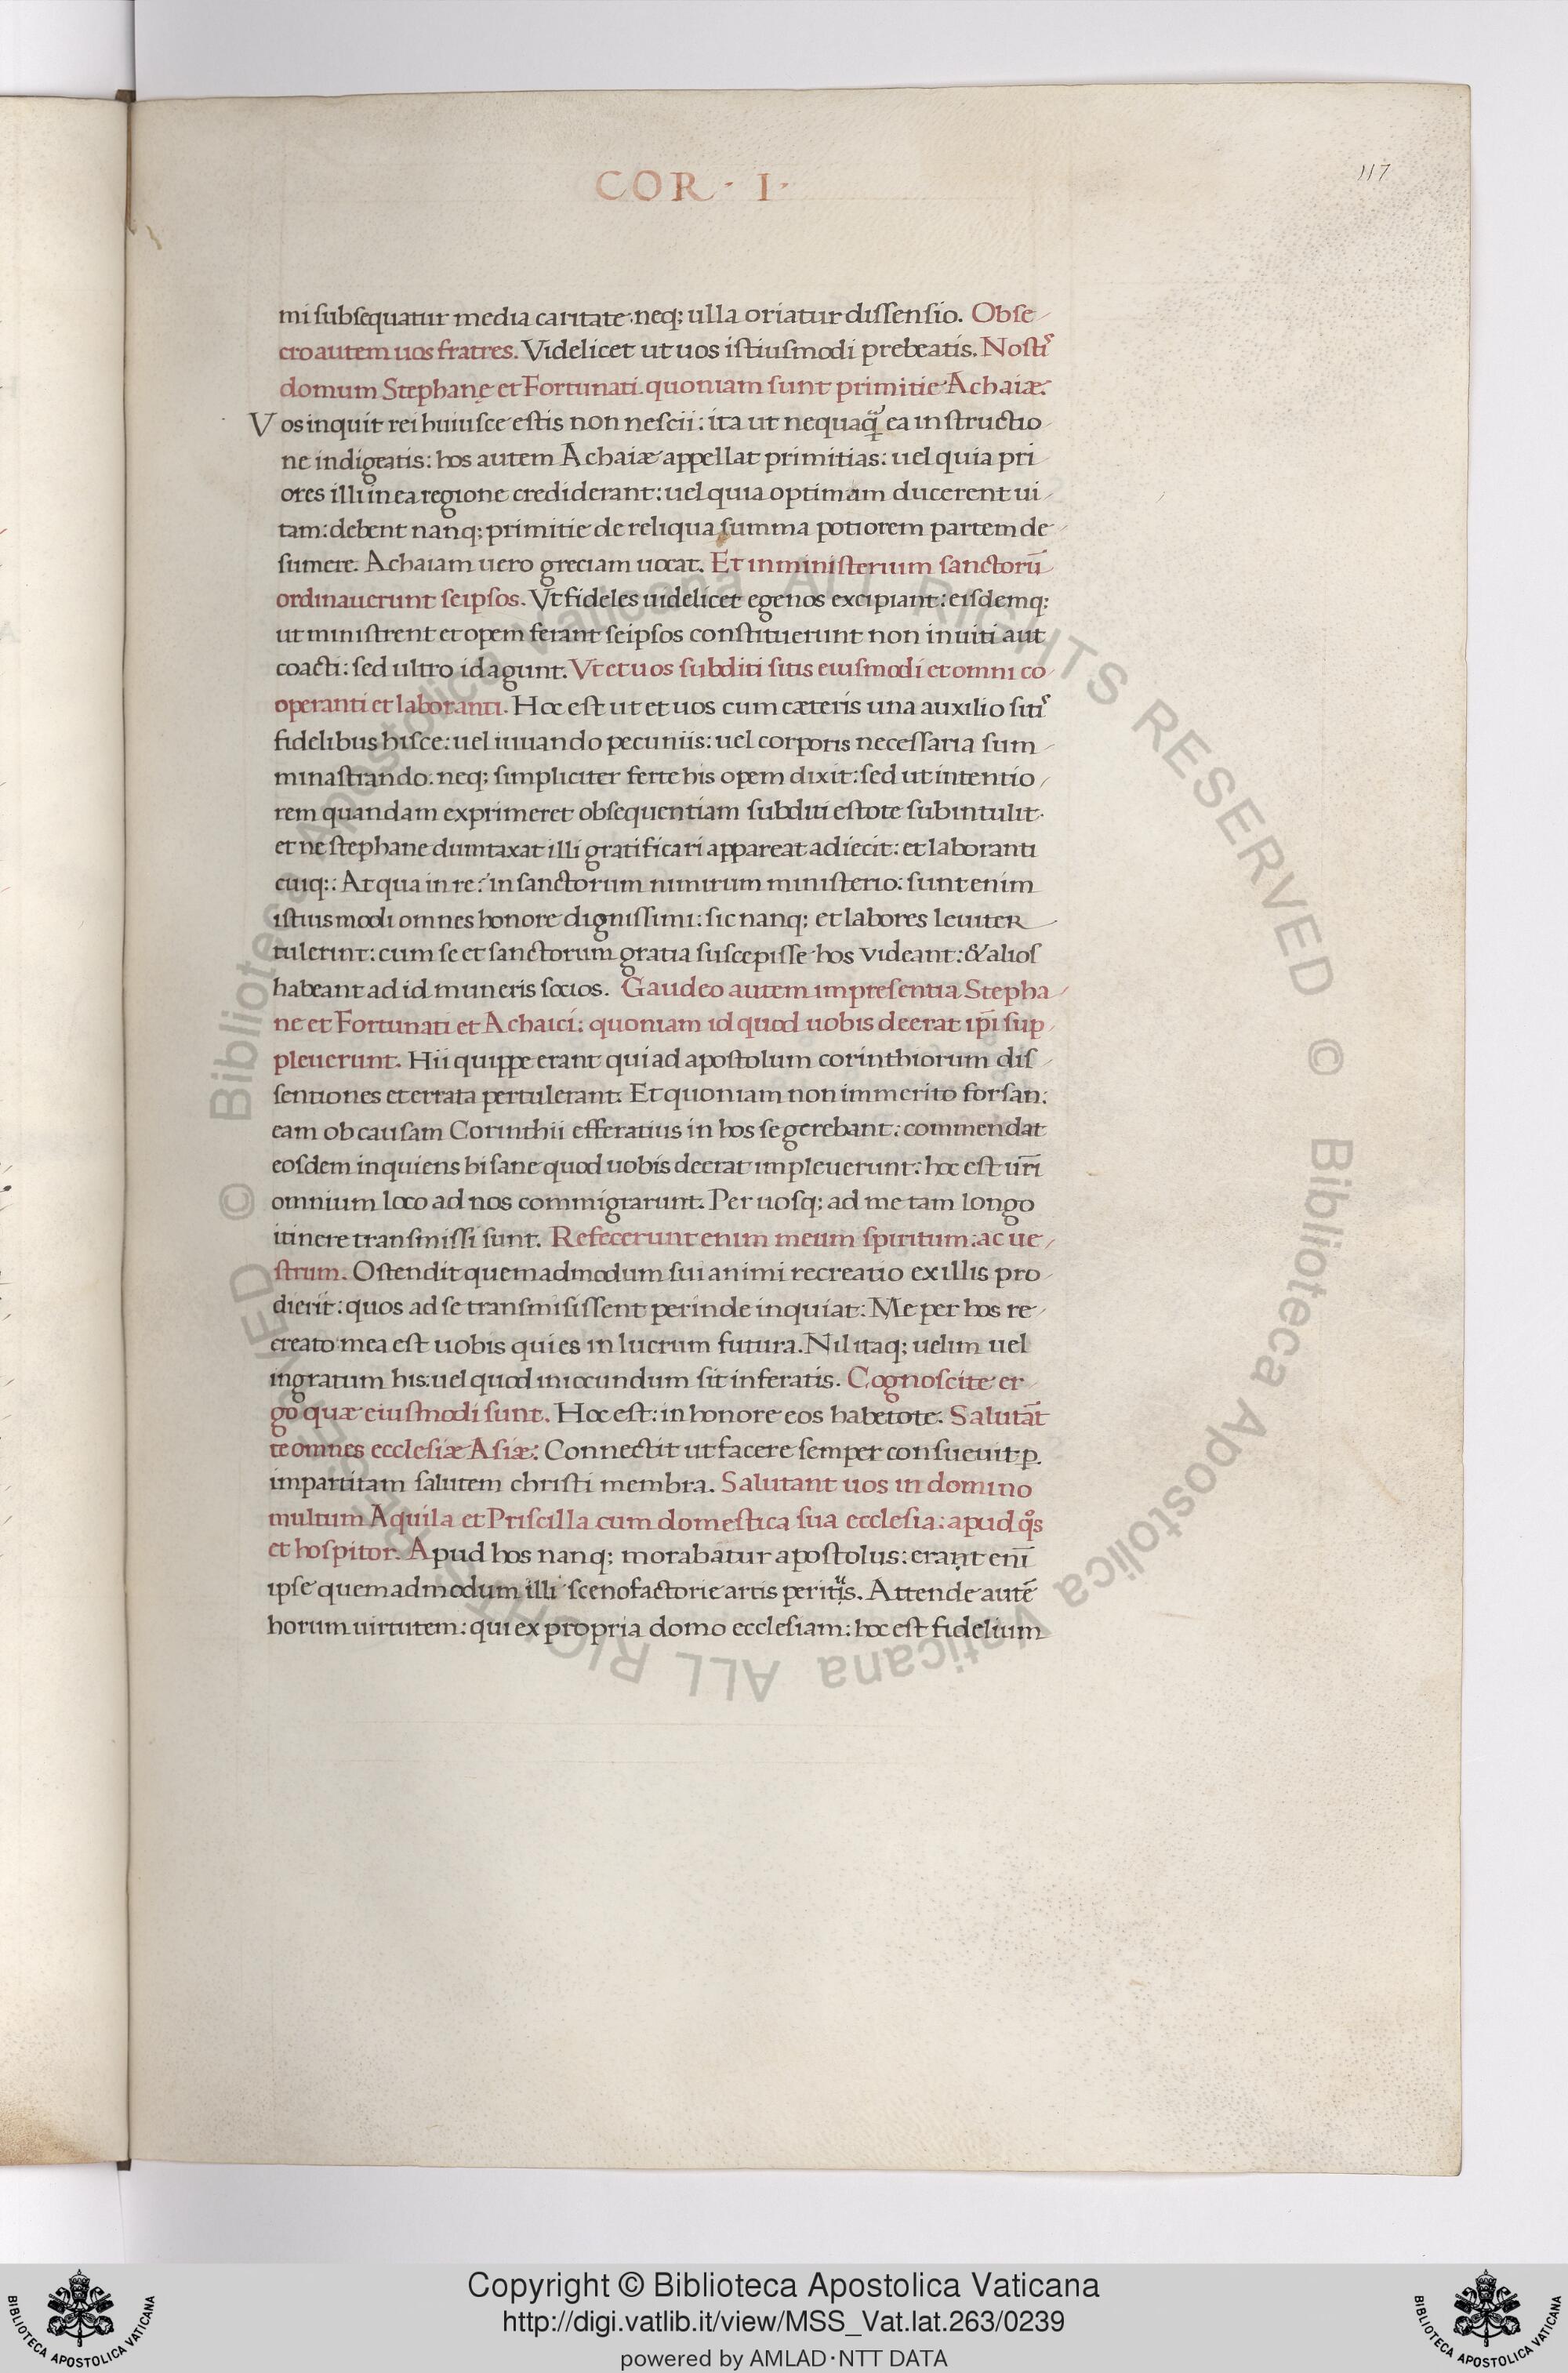 COR · I ·
117
mi subsequatur media caritate: neq; ulla oriatur dissensio. Obse
cro autem uos fratres. Videlicet ut uos istiusmodi prebeatis. Nosti᷒
domum Stephanę et Fortunati. quoniam sunt primitie Achaiæ.
Vos inquit rei huiusce estis non nescii: ita ut nequaq̃ ea instructio
ne indigeatis: hos autem Achaiæ appellat primitias: uel quia pri
ores illi in ea regione crediderant: uel quia optimam ducerent ui
tam: debent nanq; primitie de reliqua summa potiorem partem de
sumere. Achaiam uero greciam uocat. Et in ministerium sanctorū
ordinauerunt seipsos. Vt fideles uidelicet egenos excipiant: eisdemq;
ut ministrent et opem ferant seipsos constituerunt non inuiti aut
coacti: sed ultro id agunt. Vt et uos subditi sitis eiusmodi et omni co
operanti et laboranti. Hoc est ut et uos cum cæteris una auxilio siti᷒
fidelibus hisce: uel iuuando pecuniis: uel corporis necessaria sum
minastrando. neq; simpliciter ferte his opem dixit: sed ut intentio
rem quandam exprimeret obsequentiam subditi estote subintulit.
et ne stephane dumtaxat illi gratificari appareat adiecit: et laboranti
cuiq;: At qua in re: in sanctorum nimirum ministerio: sunt enim
istiusmodi omnes honore dignissimi: sic nanq; et labores leuiter
tulerint: cum se et sanctorum gratia suscepisse hos videant: & alios
habeant ad id muneris socios. Gaudeo autem im presentia Stepha
ne et Fortunati et Achaici: quoniam id quod uobis deerat ip̄i sup
pleuerunt. Hii quippe erant qui ad apostolum corinthiorum dis
sentiones et errata pertulerant. Et quoniam non immerito forsan:
eam ob causam Corinthii efferatius in hos se gerebant: commendat
eosdem inquiens hi sane quod uobis deerat impleuerunt: hoc est ur̄i
omnium loco ad nos commigrarunt. Per uosq; ad me tam longo
itinere transmissi sunt. Refecerunt enim meum spiritum: ac ue
strum. Ostendit quemadmodum sui animi recreatio ex illis pro
dierit: quos ad se transmisissent perinde inquiat: Me per hos re
creato mea est uobis quies in lucrum futura. Nil itaq; uelim uel
ingratum his: uel quod iniocundum sit inferatis. Cognoscite er
go quæ eiusmodi sunt. Hoc est: in honore eos habetote. Salutāt
te omnes ecclesiæ Asiæ: Connectit ut facere semper consueuit p̱
impartitam salutem christi membra. Salutant uos in domino
multum Aquila et Priscilla cum domestica sua ecclesia: apud qͦs
et hospitor. Apud hos nanq; morabatur apostolus: erạnt enī
ipse quemadmodum illi scenofactorie artis peritis. Attende autē
horum uirtutem: qui ex propria domo ecclesiam: hoc est fidelium
© Biblioteca Apostolica Vaticana ALL RIGHTS RESERVED © Biblioteca Apostolica Vaticana ALL RIGHTS RESERVED
Copyright © Biblioteca Apostolica Vaticana
http://digi.vatlib.it/view/MSS_Vat.lat.263/0239
powered by AMLAD·NTT DATA
BIBLIOTECA APOSTOLICA VATICANA
BIBLIOTECA APOSTOLICA VATICANA